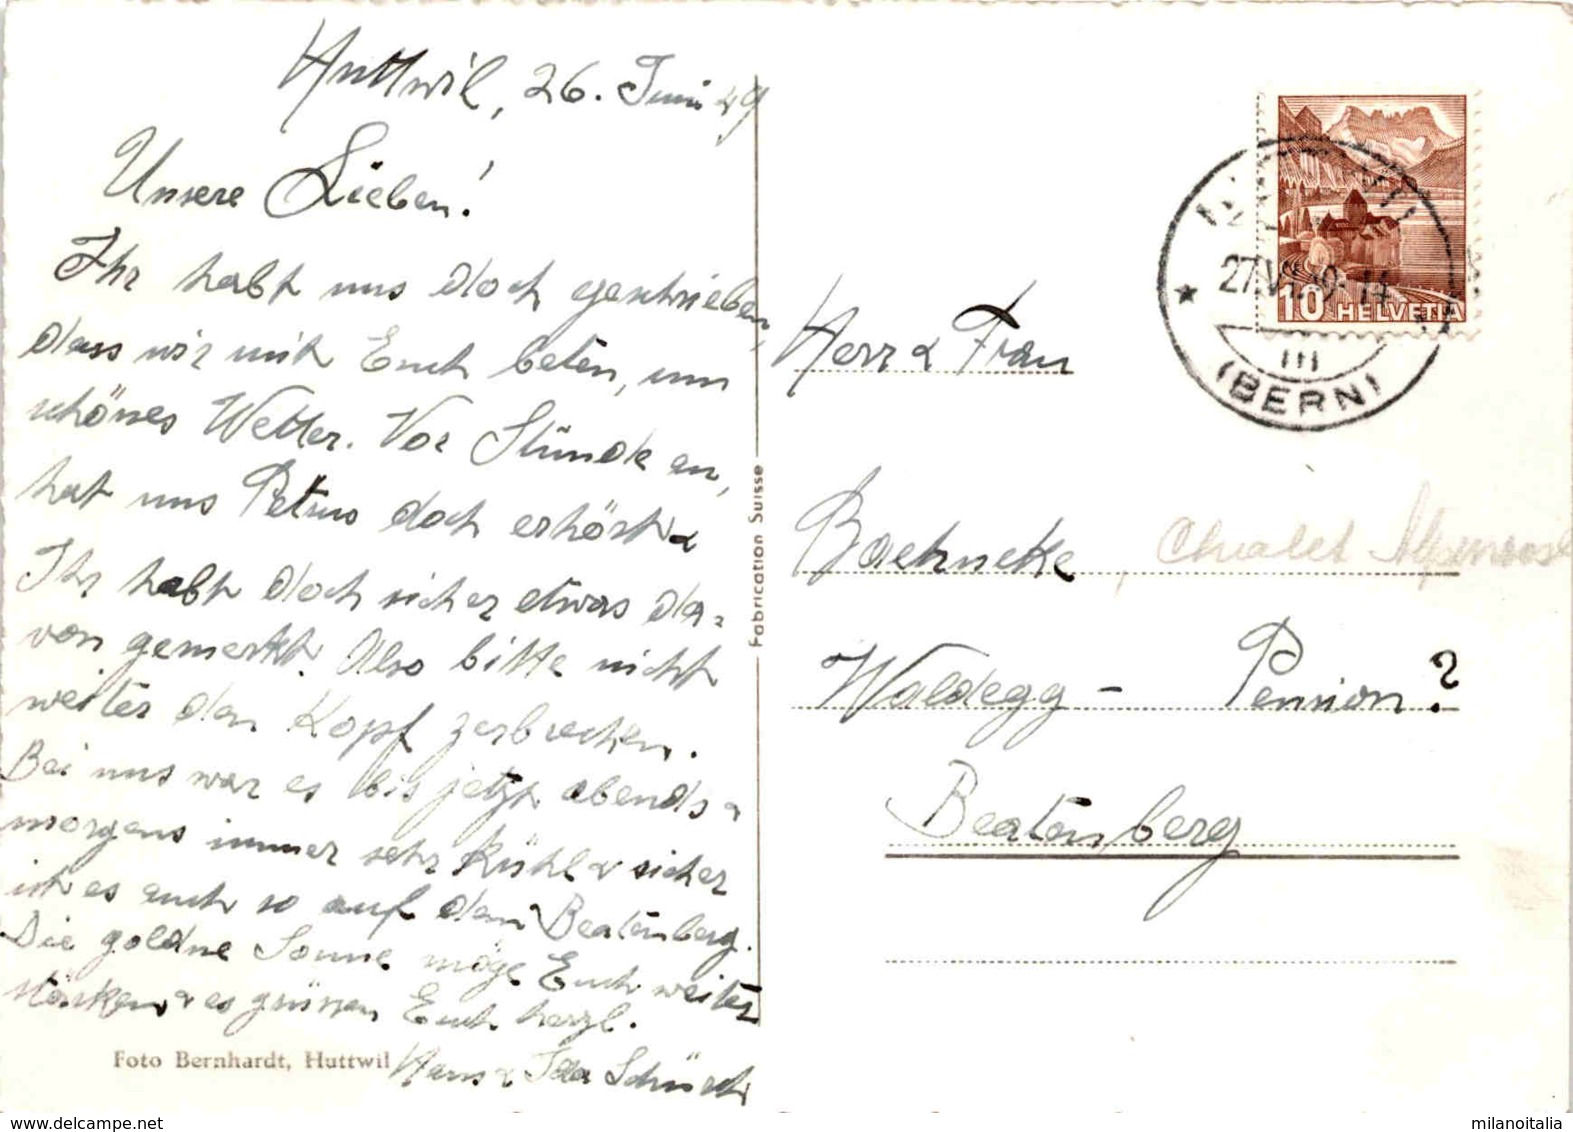 Huttwil, 26. Juni 49
Unsere Lieben!
Ihr habt uns doch geschrieben,
dass wir mit Euch beten, um
schönes Wetter. Vor Stünde an,
hat uns Petrus doch erhört &
Ihr habt doch sicher etwas da-
von gemerkt. Also bitte nicht
weiter den Kopf zerbrechen.
Bei uns war es bis jetzt abends &
morgens immer sehr kühl & sicher
ist es auch so auf dem Beatenberg.
Die goldne Sonne möge Euch weiter
stärken & es grüssen Euch herzl.
Hans & Ida
Foto Bernhardt, Huttwil
Fabrication Suisse
10 HELVETIA
27.VI.49-14
III
(BERN)
Herr & Frau
Baehncke, Chalet
Waldegg - Pension?
Beatenberg
milanoitalia